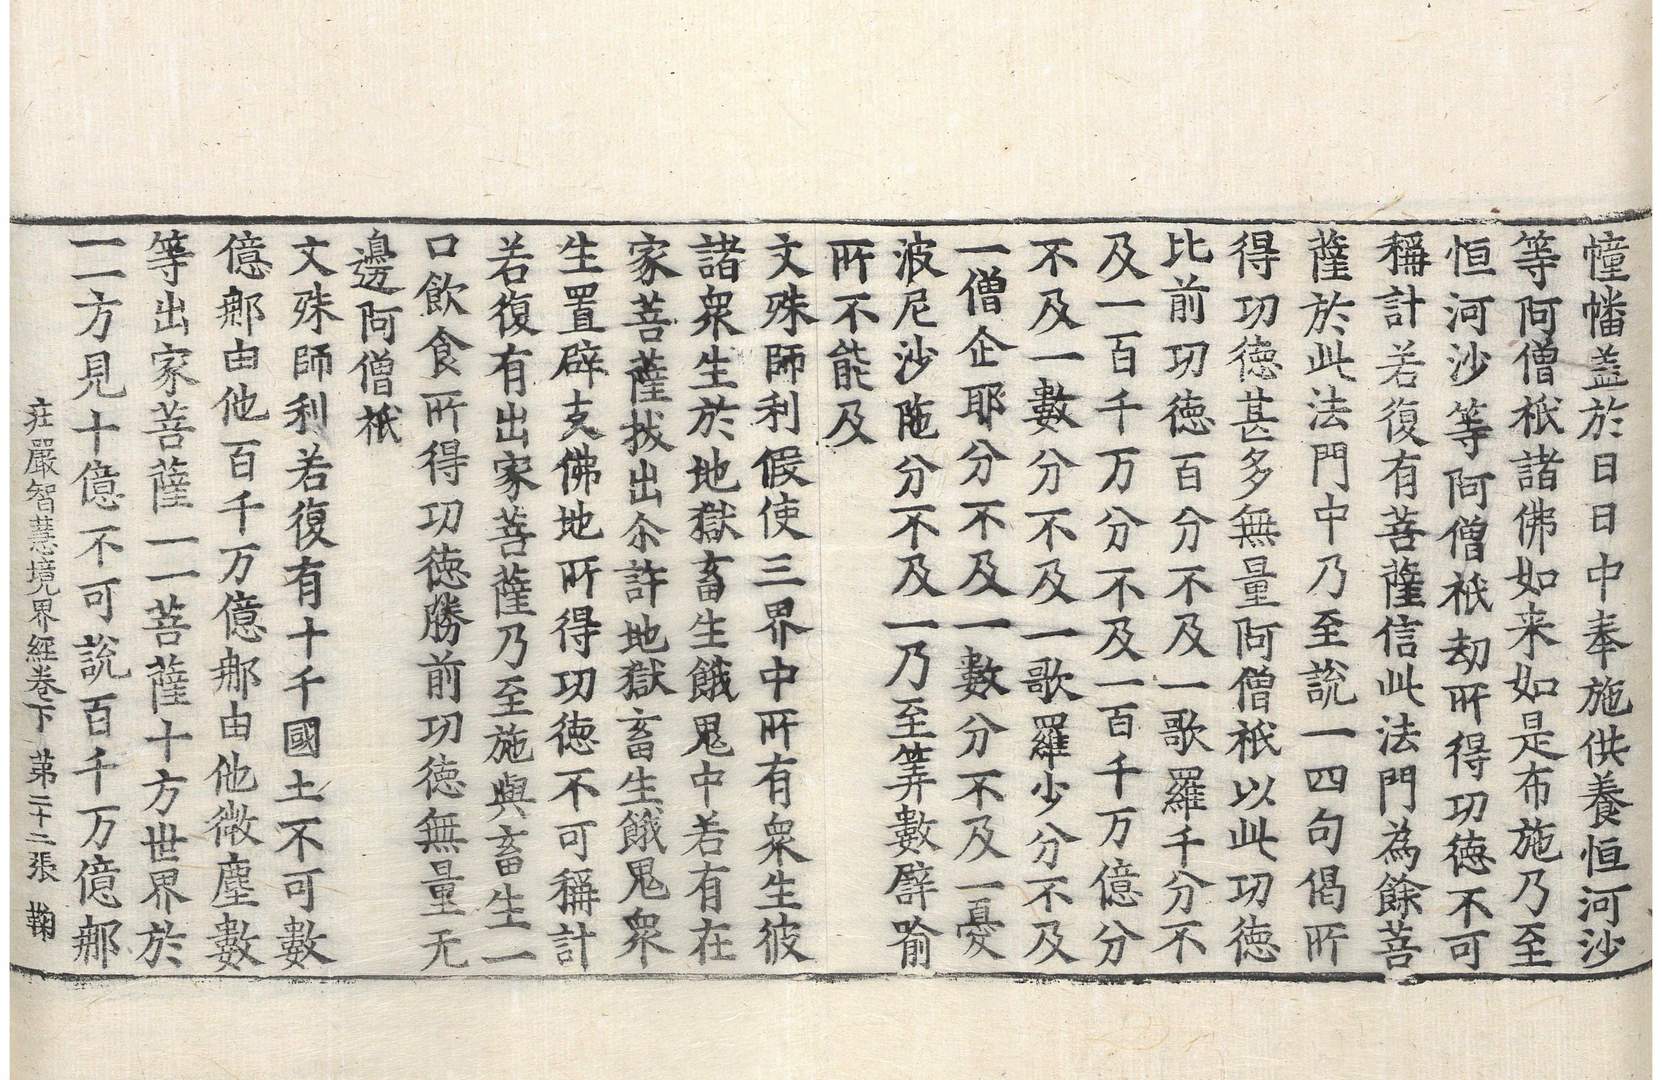 幢幡盖於日日中奉施供養恒河沙
等阿僧祇諸佛如来如是布施乃至
恒河沙等阿僧祇劫所得功德不可
稱計若復有菩薩信此法門為餘菩
薩於此法門中乃至說一四句偈所
得功德甚多無量阿僧祇以此功德
比前功德百分不及一歌羅千分不
及一百千万分不及一百千万億分
不及一數分不及一歌羅少分不及
一僧企耶分不及一數分不及一憂
波尼沙陁分不及一乃至筭數譬喻
所不能及
文殊師利假使三界中所有衆生彼
諸衆生於地獄畜生餓鬼中若有在
家菩薩拔出尒許地獄畜生餓鬼衆
生置辟支佛地所得功德不可稱計
若復有出家菩薩乃至施與畜生一
口飲食所得功德勝前功德無量无
邊阿僧祇
文殊師利若復有十千國土不可數
億那由他百千万億那由他微塵數
等出家菩薩一一菩薩十方世界於
一一方見十億不可說百千万億那
庄嚴智慧境界經卷下 苐二十二張 鞠